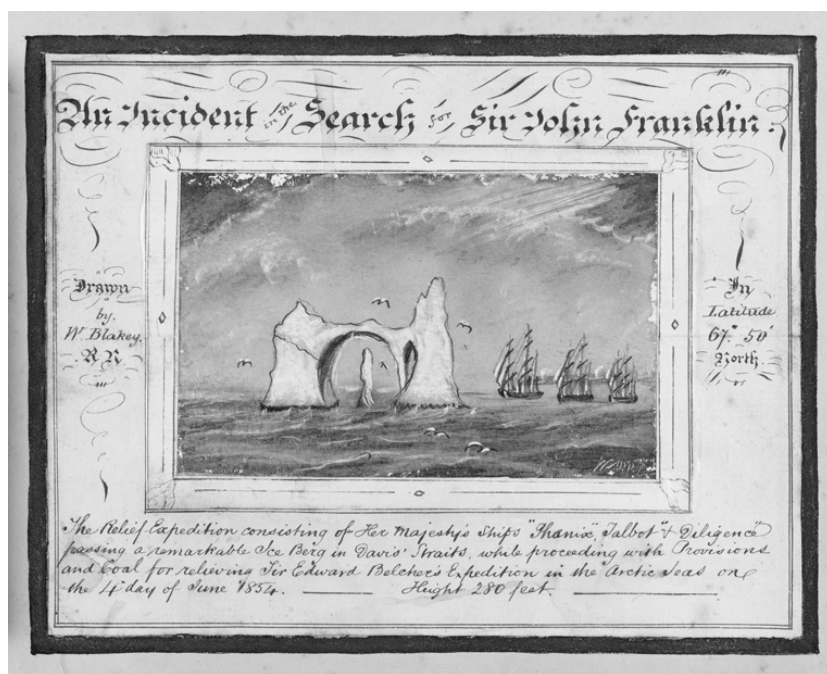 An Incident in the Search for Sir John Franklin.
Drawn
by.
W. Blakey.
RN
In
Latitude
67° 50'
North.
The Relief Expedition consisting of Her Majesty's Ships "Phœnix", Talbot" & Diligence"
passing a remarkable Ice Berg in Davis' Straits, while proceeding with Provisions
and Coal for relieving Sir Edward Belcher's Expedition in the Arctic Seas on
the 4th day of June 1854. Height 280 feet